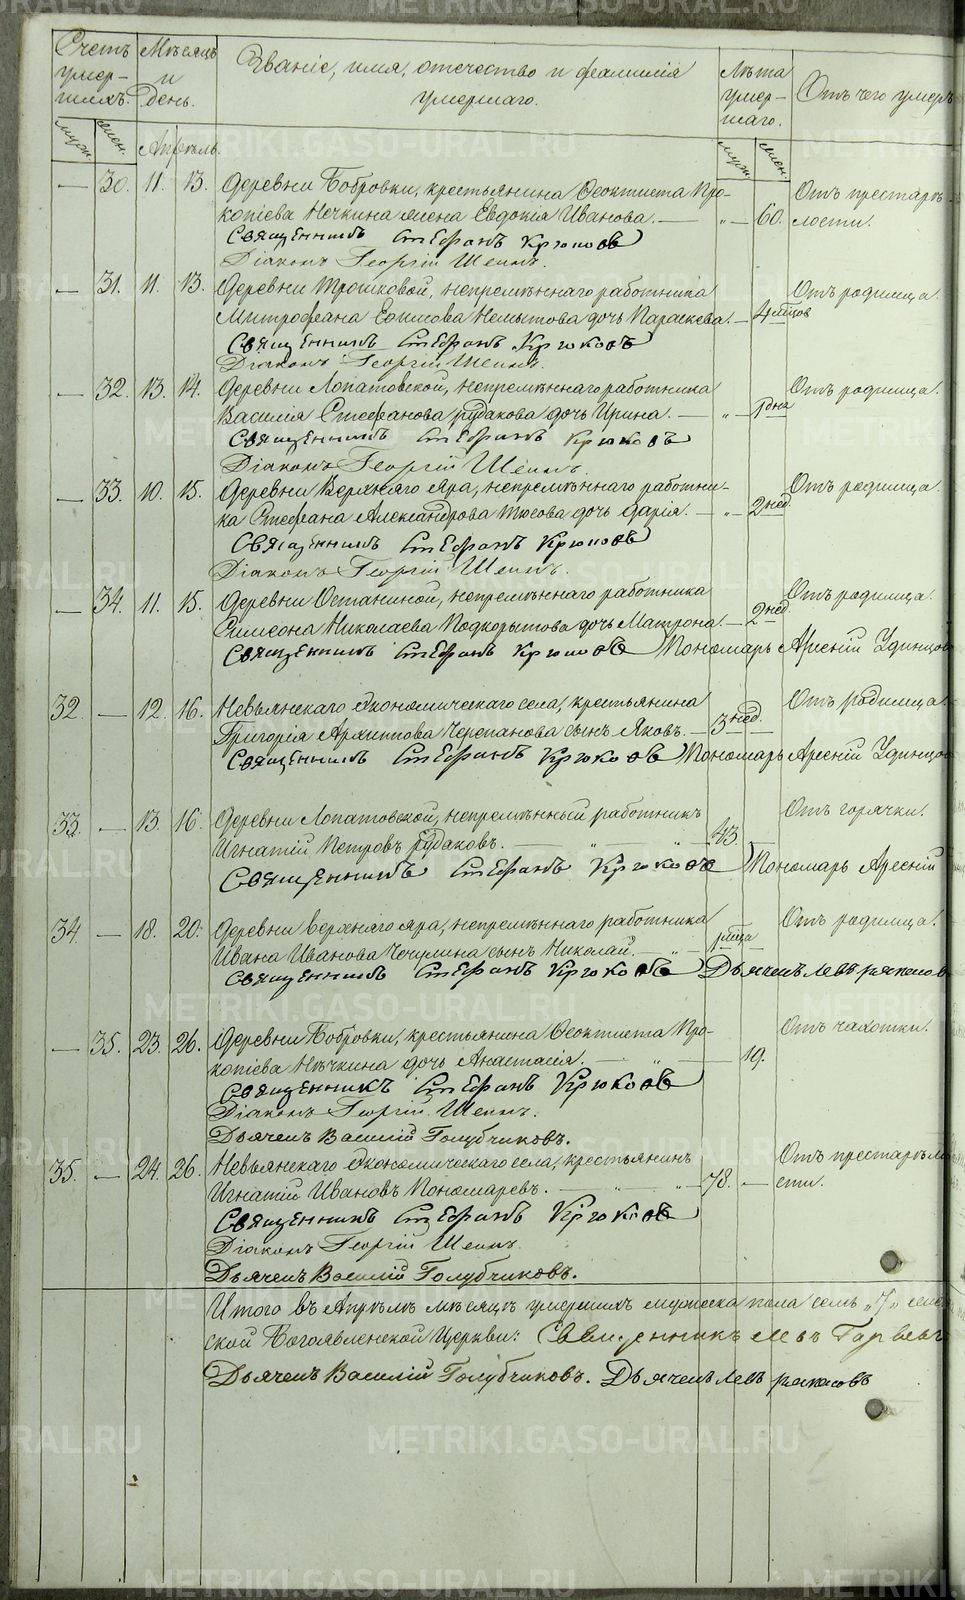 METRIKI.GASO-URAL.RU
Счетъ умер-шихъ.
Мѣсяцъ и день.
Званіе, имя, отечество и фамилія умершаго.
Лѣта умер-шаго.
Отъ чего умеръ
муж. жен. Апрѣль. муж. жен.
— 30. 11. 13. Деревни Бобровки, крестьянина Ѳеоктиста Про- Отъ престарѣ-
копіева Нечкина жена Евдокія Иванова. — „ — 60. лости.
Священникъ Стефанъ Крюковъ
Діаконъ Георгій Шеинъ.
— 31. 11. 13. Деревни Трошковой, непремѣннаго работника Отъ родимца.
Митрофана Ефимова Немытова дочь Параскева. — 4 мѣсцов
Священникъ Стефанъ Крюковъ
Діаконъ Георгій Шеинъ.
— 32. 13. 14. Деревни Лопатовской, непремѣннаго работника Отъ родимца.
Василія Стефанова Рудакова дочь Ирина. — „ — 1 дня
Священникъ Стефанъ Крюковъ
Діаконъ Георгій Шеинъ.
— 33. 10. 15. Деревни Верхняго Яра, непремѣннаго работни- Отъ родимца.
ка Стефана Александрова Тюсова дочь Дарія. — „ — 2 нед.
Священникъ Стефанъ Крюковъ
Діаконъ Георгій Шеинъ.
— 34. 11. 15. Деревни Останиной, непремѣннаго работника Отъ родимца.
Симеона Николаева Подкорытова дочь Матрона. — 2 нед.
Священникъ Стефанъ Крюковъ Пономарь Арсеній Удинцов
32. — 12. 16. Невьянскаго Экономическаго села, крестьянина Отъ родимца.
Григорія Архиппова Черепанова сынъ Яковъ. — 3 нед.
Священникъ Стефанъ Крюковъ Пономарь Арсеній Удинцов
33. — 13. 16. Деревни Лопатовской, непремѣнный работникъ Отъ горячки.
Игнатій Петровъ Рудаковъ. — „ „ — 43. —
Священникъ Стефанъ Крюковъ Пономарь Арсеній
34. — 18. 20. Деревни Верхняго Яра, непремѣннаго работника Отъ родимца.
Ивана Иванова Чечулина сынъ Николай. „ — 1 мѣца —
Священникъ Стефанъ Крюковъ Дьячекъ Левъ
— 35. 23. 26. Деревни Бобровки, крестьянина Ѳеоктиста Про- Отъ чахотки.
копіева Нѣчкина дочь Анастасія. — „ — 19.
Священникъ Стефанъ Крюковъ
Діаконъ Георгій Шеинъ.
Дьячекъ Василій Голубчиковъ.
35. — 24. 26. Невьянскаго Экономическаго села, крестьянинъ Отъ престарѣло
Игнатій Ивановъ Пономаревъ. — „ „ — 78. — сти.
Священникъ Стефанъ Крюковъ
Діаконъ Георгій Шеинъ
Дьячекъ Василій Голубчиковъ.
Итого въ Апрѣлѣ мѣсяцѣ умершихъ мужеска пола семь „7„
ской Богоявленской Церкви: Священникъ Левъ
Дьячекъ Василій Голубчиковъ. Дьячекъ Левъ